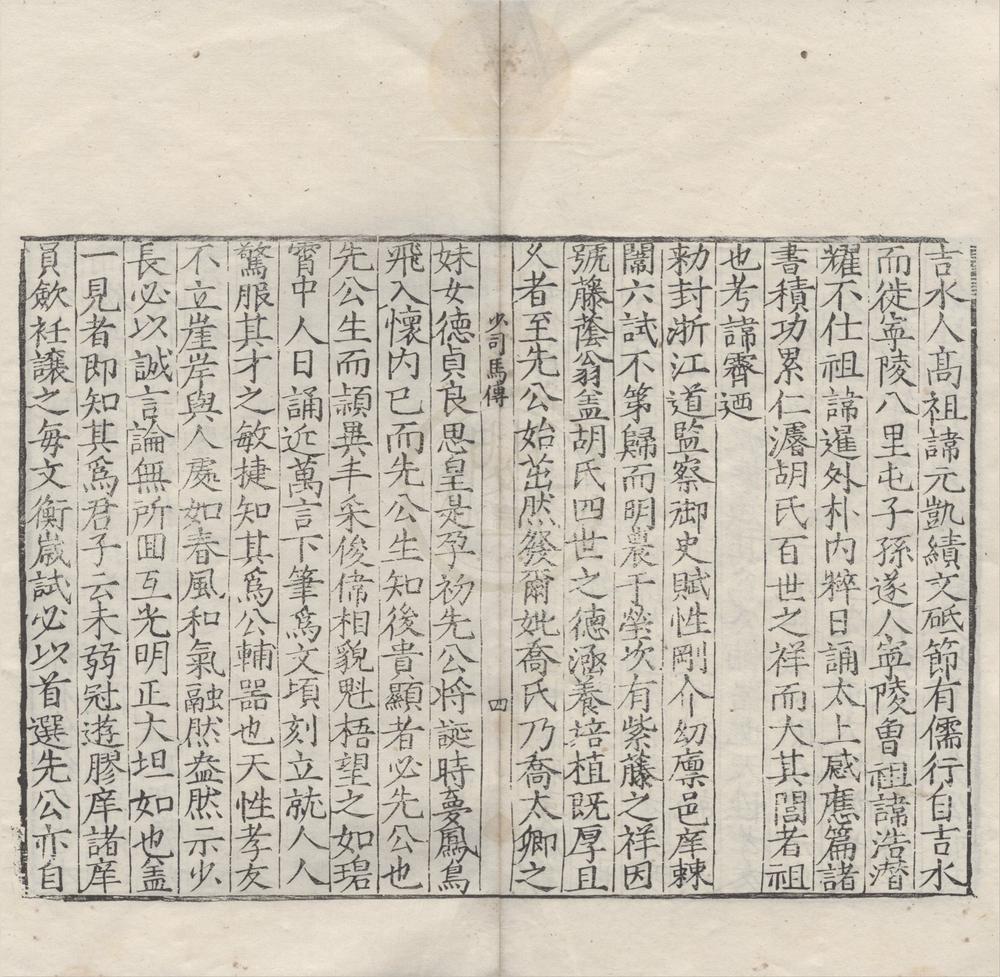 吉水人高祖諱元凱績文砥節有儒行自吉水
而徙寧陵八里屯子孫遂人寧陵曾祖諱浩潛
耀不仕祖諱暹外朴内粹日誦太上感應篇諸
書積功累仁濬胡氏百世之祥而大其閭者祖
也考諱霽迺
勑封浙江道監察御史賦性剛介幼廩邑庠棘
闈六試不第歸而明農于塋次有紫藤之祥因
號藤蔭翁盖胡氏四世之德涵養培植既厚且
久者至先公始茁然發爾妣喬氏乃喬太卿之
少司馬傳
四
妹女德貞良思皇是孕初先公将誕時夢鳳鳥
飛入懷内已而先公生知後貴顯者必先公也
先公生而頴異丰采俊偉相貌魁梧望之如碧
霄中人日誦近萬言下筆爲文頃刻立就人人
驚服其才之敏捷知其爲公輔噐也天性孝友
不立崖岸與人處如春風和氣融然盎然示少
長必以誠言論無所囬互光明正大坦如也盖
一見者即知其爲君子云未弱冠遊膠庠諸庠
員斂衽讓之每文衡歲試必以首選先公亦自